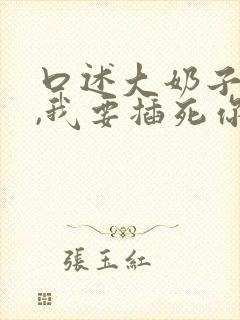 口述大奶子
,我要插死你
張玉紅